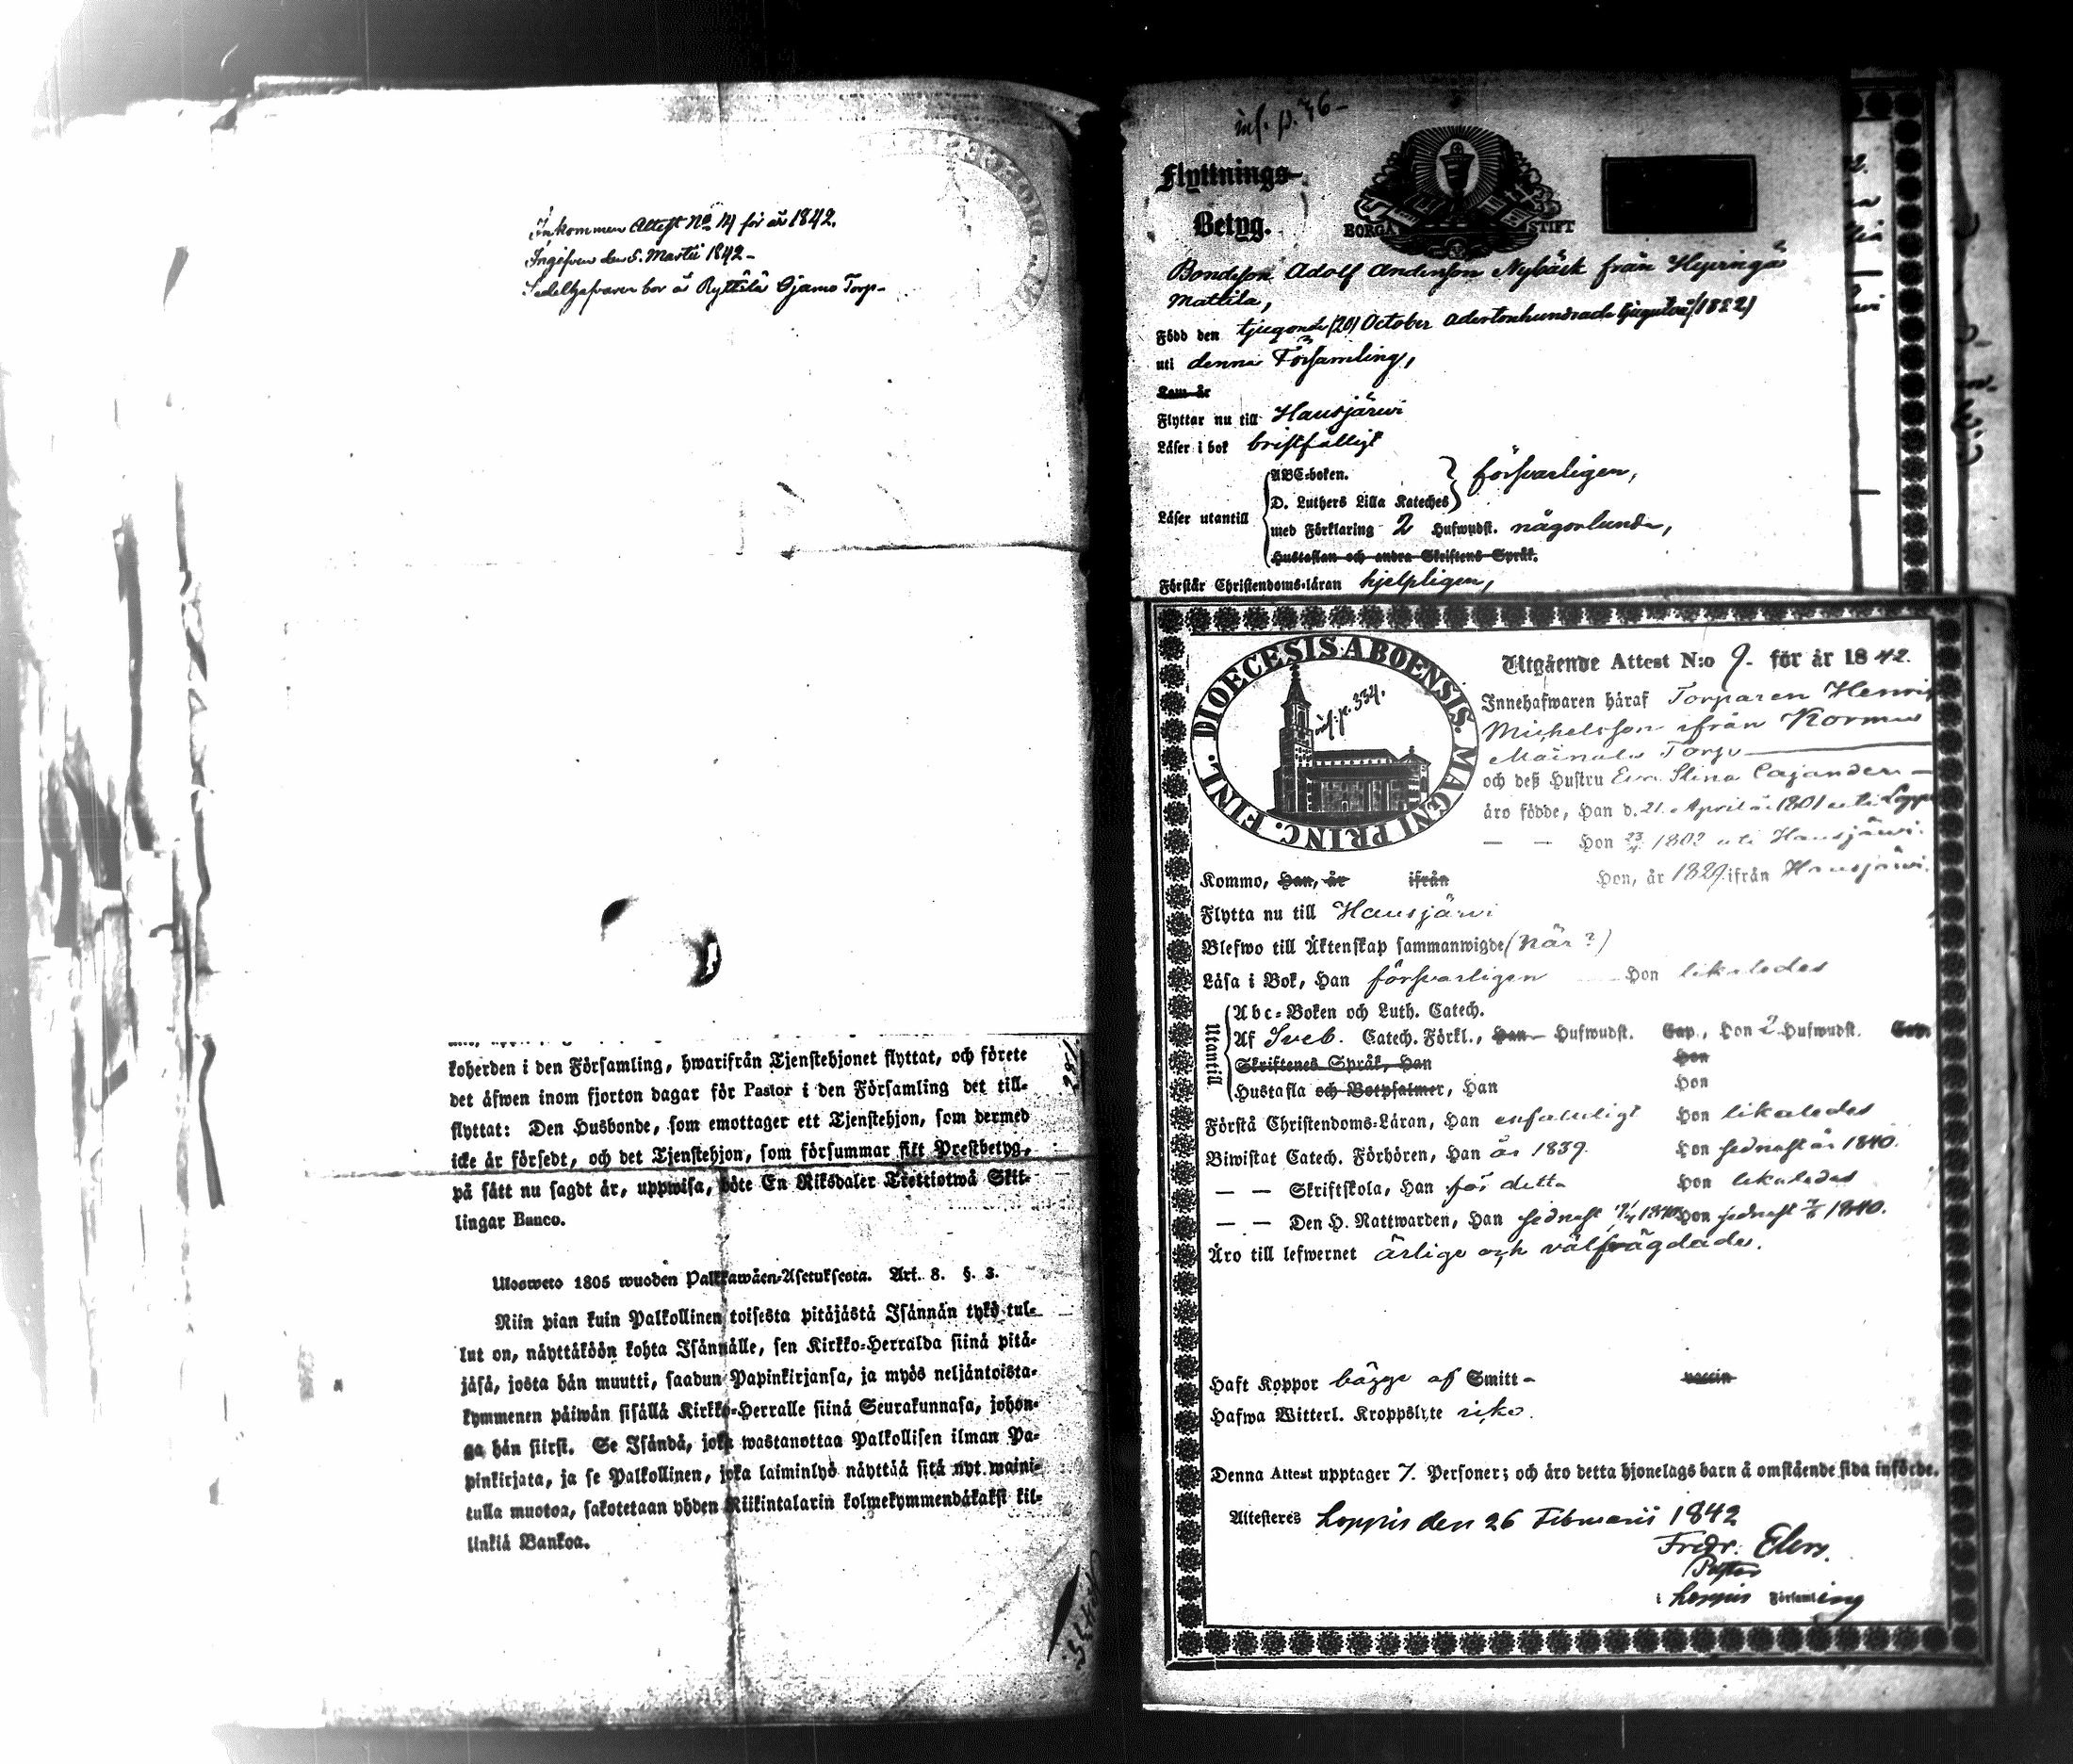 Inkommen Attest No 14 för år 1842.
Ingifven den 5. Martii 1842-
Sedelhafvaren bor å Ryttilä Ojamo Torp-
koherden i den Församling, hwarifrån Tjenstehjonet flyttat, och förete
det åfwen inom fjorton dagar för Pastor i den Församling det till-
flyttat: Den Husbonde, som emottager ett Tjenstehjon, som dermed
icke är försedt, och det Tjenstehjon, som försummar sitt Prestbetyg,
på sätt nu sagdt är, uppwisa, böte En Riksdaler Trettiotwå Skil-
lingar Banco.
Ulosweto 1805 wuoden Palkkawäen-Asetuksesta. Art. 8. §. 3.
Niin pian kuin Palkollinen toisesta pitäjästä Isännän tykö tul-
lut on, näyttäköön kohta Isännälle, sen Kirkko-Herralda siinä pitä-
jäsä, josta hän muutti, saadun Papinkirjansa, ja myös neljäntoista-
kymmenen päiwän sisällä Kirkko-Herralle siinä Seurakunnasa, johon-
ga hän siirst. Se Isändä, joka wastanottaa Palkollisen ilman Pa-
pinkirjata, ja se Palkollinen, joka laiminlyö näyttää sitä nyt maini-
tulla muotoa, sakotetaan yhden Riikintalarin kolmekymmendäkaksi kil-
linkiä Bankoa.
inf. p. 76-
Flyttnings-
Betyg.
BORGÅ STIFT
Bondeson Adolf Andersson Nybäck från Hyvingä
Mattila,
Född den tjugonde (20) October adertonhundrade tjugutvå (1822)
uti denna Församling,
Kom år
Flyttar nu till Hausjärwi
Läser i bok bristfälligt
ABC-boken.
D. Luthers Lilla Kateches } försvarligen,
Läser utantill
med Förklaring 2 Hufwudst. någorlunda,
Hustaflan och andra Skriftens Språk.
Förstår Christendoms-läran hjelpligen,
DIOECESIS ABOENSIS. MAGNI PRINC. FINL.
inf. p. 334.
Utgående Attest N:o 9. för år 1842.
Innehafwaren håraf Torparen Henrik
Michelsson ifrån Kormu
Torp
och deß Hustru Eva Stina Cajander
äro födde, Han d. 21. April år 1801 uti Loppis
— — Hon 1802 uti Hausjärwi.
Kommo, Han, år ifrån Hon, år 1829 ifrån Hausjärwi.
Flytta nu till Hausjärwi
Blefwo till Äktenskap sammanwigde (När?)
Läsa i Bok, Han försvarligen Hon likaledes
Utantill
Abc-Boken och Luth. Catech.
Af Sveb. Catech. Förkl., Han Hufwudst. Cap., Hon 2 Hufwudst. Cap.
Skriftenes Språk, Han Hon
Hustafla och Botpsalmer, Han Hon
Förstå Christendoms-Läran, Han enfaldigt Hon likaledes
Biwistat Catech. Förhören, Han år 1839. Hon sednast år 1840.
— — Skriftskola, Han för detta Hon likaledes
— — Den H. Nattwarden, Han sednast 1840 Hon sednast 1840.
Äro till lefwernet ärlige och välfrägdade.
Haft Koppor bägge af Smitt- vaccin
Hafwa Witterl. Kroppslyte icke.
Denna Attest upptager 7. Personer; och äro detta hjonelags barn å omstående sida införde.
Attesteres Loppis den 26 Februarii 1842
Fredr. Elers.
Pastor
i Loppis Församling